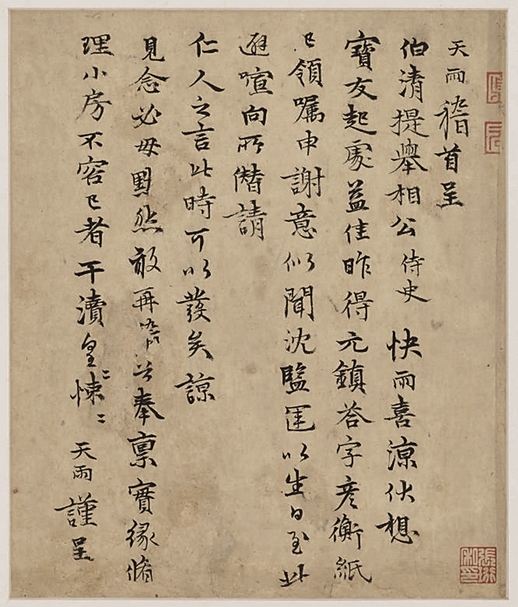 天雨稽首呈
伯清提舉相公侍史 快雨喜涼伏想
寶友起處益佳昨得元鎮荅字彥衡紙
已領囑申謝意似聞沈監
以生日至此
避喧向所僭請
仁人之言此時可以發矣諒
見念必毋默然敢再
奉稟實緣脩
理小房不容已者干瀆皇〻悚〻 天雨謹呈